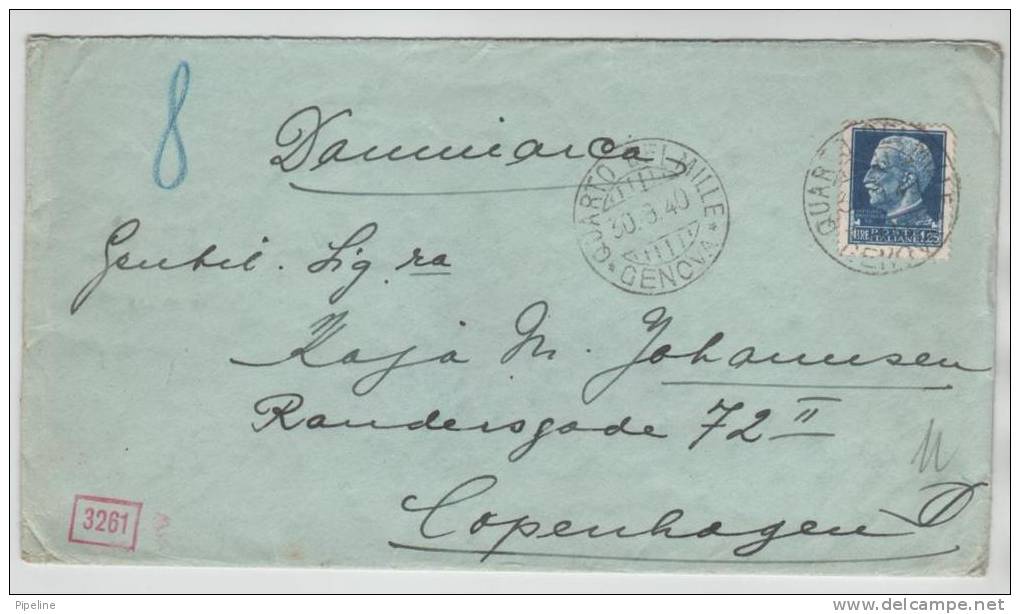 8
Danimarca
QUARTO DEI MILLE
30.8.40
* GENOVA *
QUARTO
LIRE POSTE ITALIANE 1,25
Gentil. Sig ra
Kaja M. Johannsen
Randersgade 72 II
Copenhagen
3261
Pipeline
www.delcampe.net